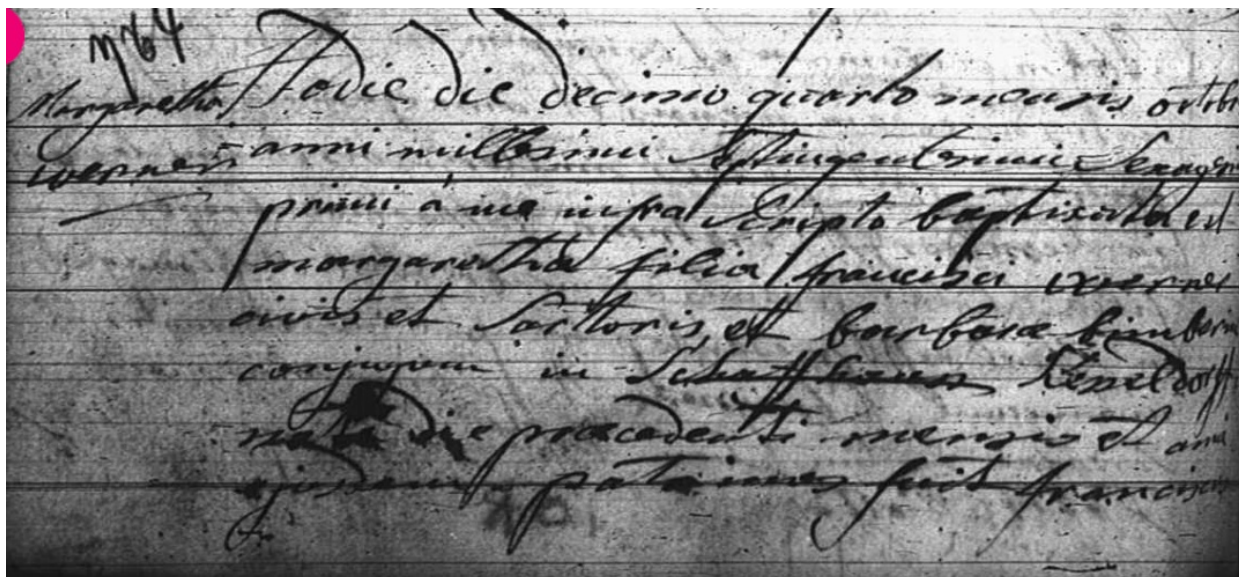 n64
Margaretha
werner
Hodie die decimo quarto mensis octobr
anni millesimi Septingentesimi Sexagesi
primi a me infra Scripto baptisata est
margaretha filia francisci werner
civis et Sartoris et barbara
conjugum in Schaffhausen
nata die praecedenti mensis et anni
ejusdem patrinus fuit franciscus